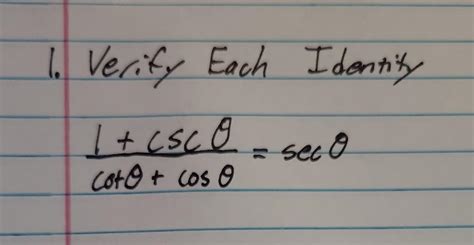 1. Verify Each Identity
1 + csc θ
cotθ + cos θ
= sec θ